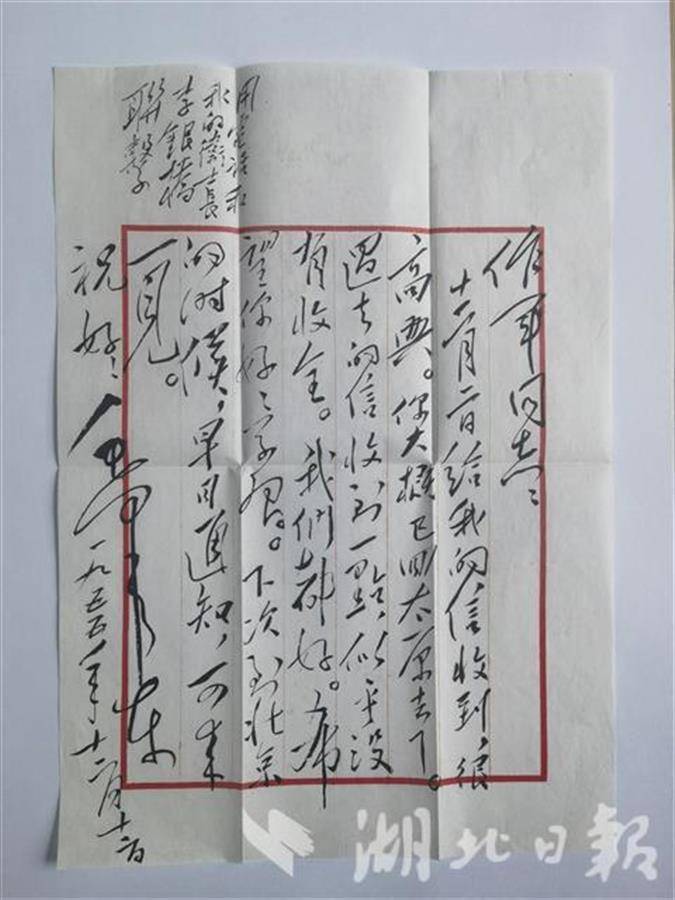 作軍同志：
十一月二日給我的信收到，很
高興。你大概已回太原去了。
過去的信收到一點，似乎没
有收全。我們都好。希
望你好好学習。下次到北京
的时候，早日通知，可来
一見。
用電話和
我的衛士長
李銀橋
聯繫
祝好！
毛澤東
一九五五年十二月十二日
湖北日報